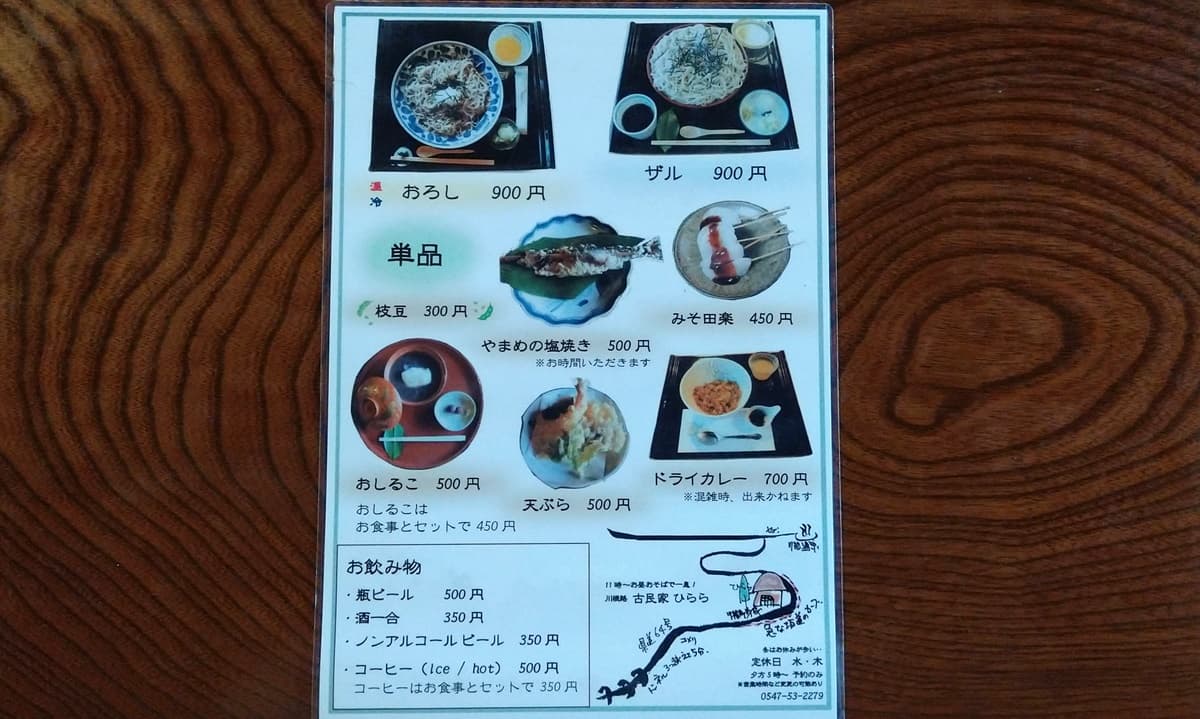 温
冷
おろし 900円
ザル 900円
単品
枝豆 300円
やまめの塩焼き 500円
※お時間いただきます
みそ田楽 450円
おしるこ 500円
おしるこは
お食事とセットで 450円
天ぷら 500円
ドライカレー 700円
※混雑時、出来かねます
お飲み物
・瓶ビール 500円
・酒一合 350円
・ノンアルコールビール 350円
・コーヒー(Ice / hot) 500円
コーヒーはお食事とセットで 350円
11時～お昼おそばで一息!
川根路 古民家 ひらら
ひらら
県道64号
急な坂道のカーブ
冬はお休みが多い…
定休日 水・木
夕方5時～ 予約のみ
※営業時間など変更の可能あり
0547-53-2279